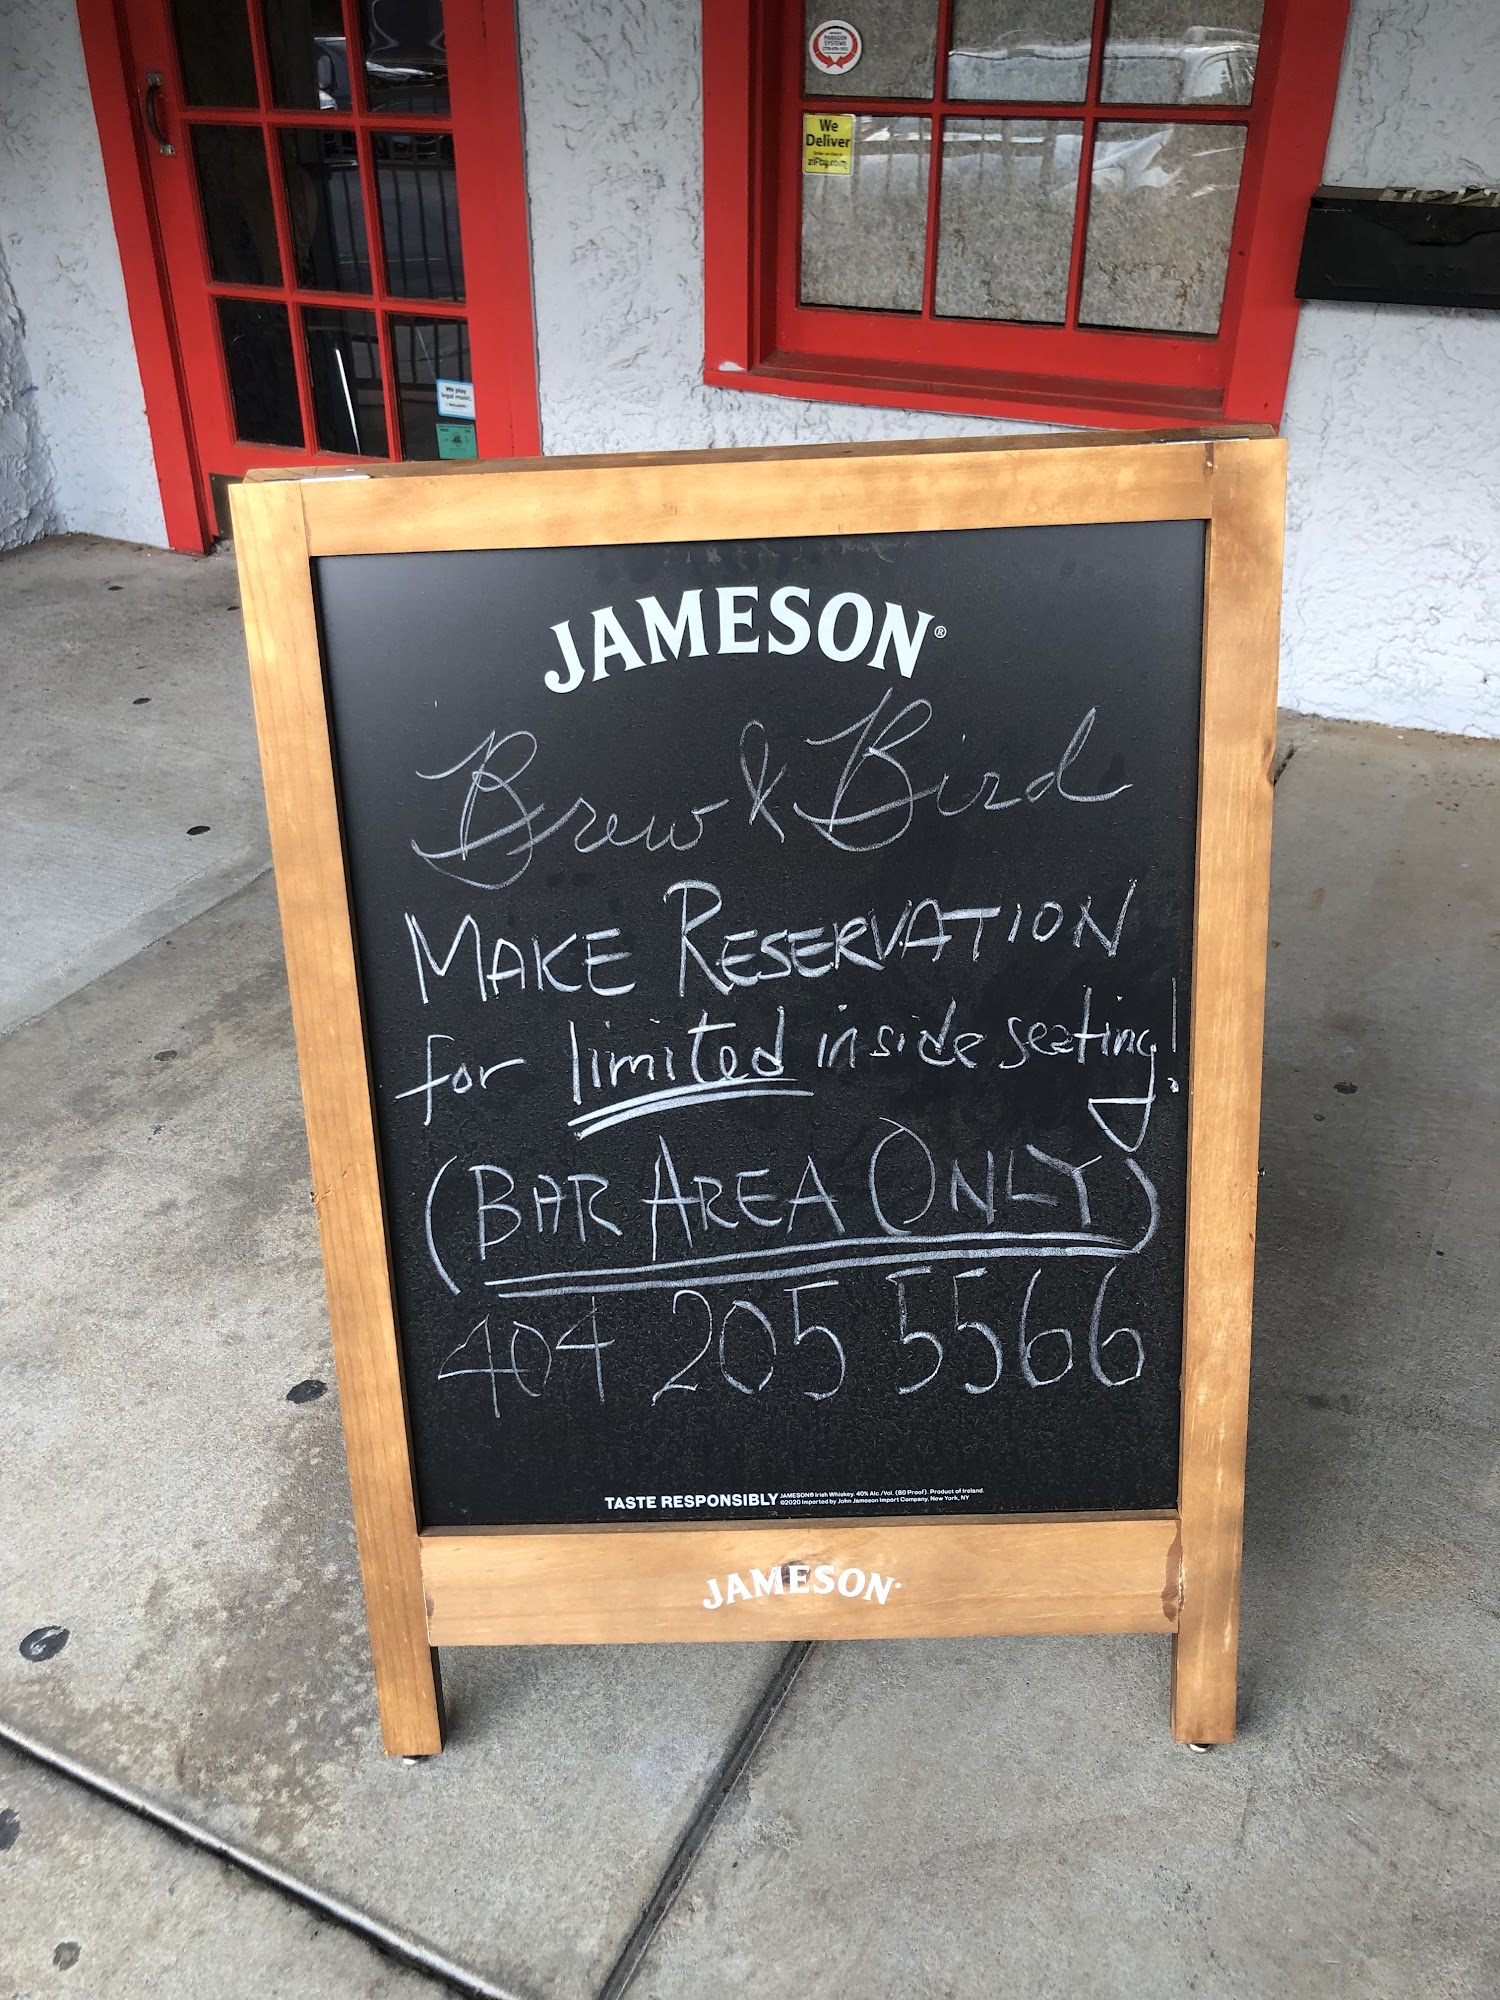 PARAGON
SYSTEMS
We
Deliver
zifty.com
We play
legal music.
JAMESON®
Brew & Bird
MAKE RESERVATION
for limited inside seating!
(BAR AREA ONLY)
404 205 5566
TASTE RESPONSIBLY JAMESON® Irish Whiskey. 40% Alc./Vol. (80 Proof). Product of Ireland.
©2020 Imported by John Jameson Import Company, New York, NY
JAMESON